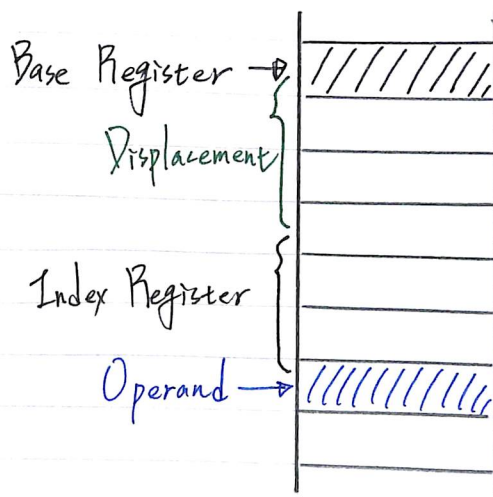 Base Register
Displacement
Index Register
Operand